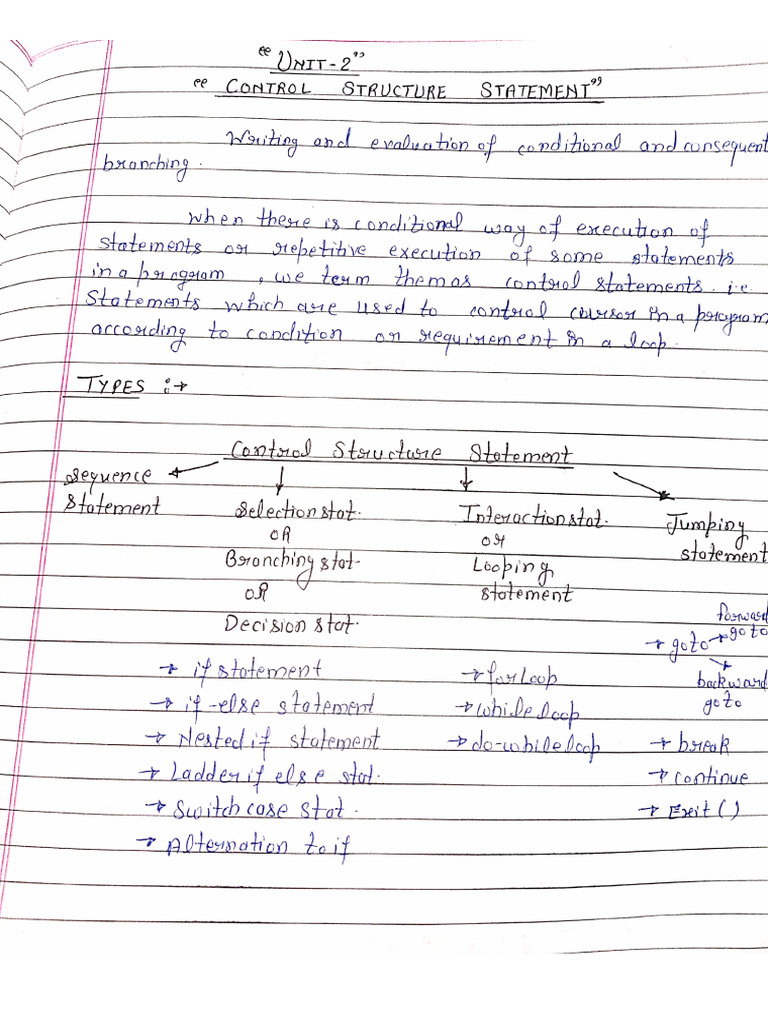 "UNIT-2"
"CONTROL STRUCTURE STATEMENT"
Writing and evaluation of conditional and consequent
branching.
When there is conditional way of execution of
statements or repetitive execution of some statements
in a program, we term them as control statements. i.e.
Statements which are used to control cursor in a program
according to condition or requirement in a loop.
TYPES :→
Control Structure Statement
Sequence
Statement Selection stat. Interaction stat. Jumping
OR or statement
Branching stat. Looping
OR statement
Decision stat. forward
→ goto → goto
→ if statement → for loop backward
→ if-else statement → while loop goto
→ Nested if statement → do-while loop → break
→ Ladder if else stat. → continue
→ Switch case stat. → Exit()
→ Alternation to if